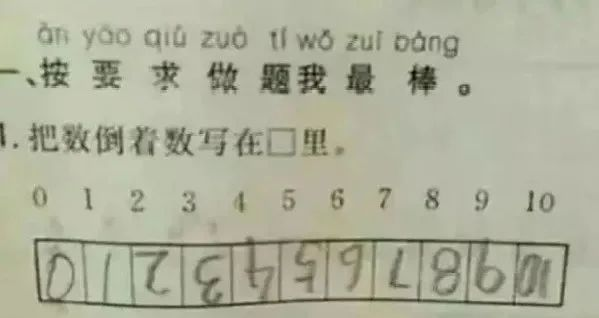 àn yāo qiú zuò tí wǒ zuì bàng
一、按要求做题我最棒。
1.把数倒着数写在□里。
0 1 2 3 4 5 6 7 8 9 10
0 1 2 3 4 5 6 7 8 9 10